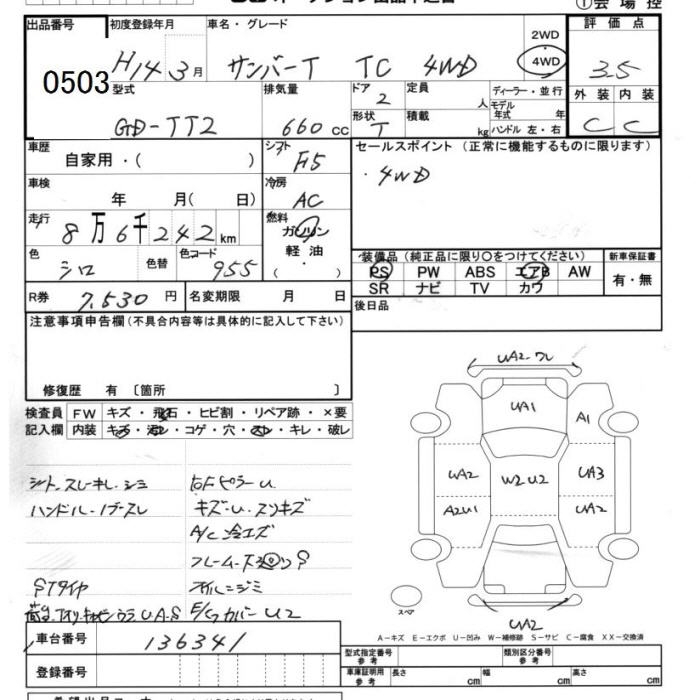 ①会 場 控
出品番号
0503
初度登録年月
H14 3月
車名・グレード
サンバーT TC 4WD
2WD
4WD
評 価 点
3.5
外 装 内 装
C C
型式
GD-TT2
排気量
660 cc
ドア
2
形状
T
定員
人
積載
kg
ディーラー・並 行
モデル
年式 年
ハンドル 左・右
車歴
自家用・( )
シフト
F5
セールスポイント (正常に機能するものに限ります)
・4WD
車検
年 月( 日)
冷房
AC
走行
8万6千242km
燃料
ガソリン
軽 油
( ・ )
色
シロ
色替
色コード
955
装備品 (純正品に限り○をつけてください)
PS PW ABS エアB AW
SR ナビ TV カワ
新車保証書
有・無
R券
7,530 円
名変期限 月 日
後日品
注意事項申告欄(不具合内容等は具体的に記入して下さい)
修復歴 有 〔箇所 〕
検査員
記入欄
FW キズ・飛石・ヒビ割・リペア跡・×要
内装 キズ・汚レ・コゲ・穴・スレ・キレ・破レ
シート.スレ.キレ.シミ
ハンドル・ノブスレ
STタイヤ
右Fピラーu
キズ・u.スリキズ
A/C 冷エズ
フレーム・下廻りS
オイルニジミ
E/Gカバー U2
UA2.ワレ
UA1
A1
UA2
W2U2
UA3
A2U1
UA2
スペア
UA2
A－キズ E－エクボ U－凹み W－補修跡 S－サビ C－腐食 XX－交換済
車台番号
136341
登録番号
型式指定番号
参 考
類別区分番号
参 考
車庫証明用
参 考
長さ cm 幅 cm 高さ cm